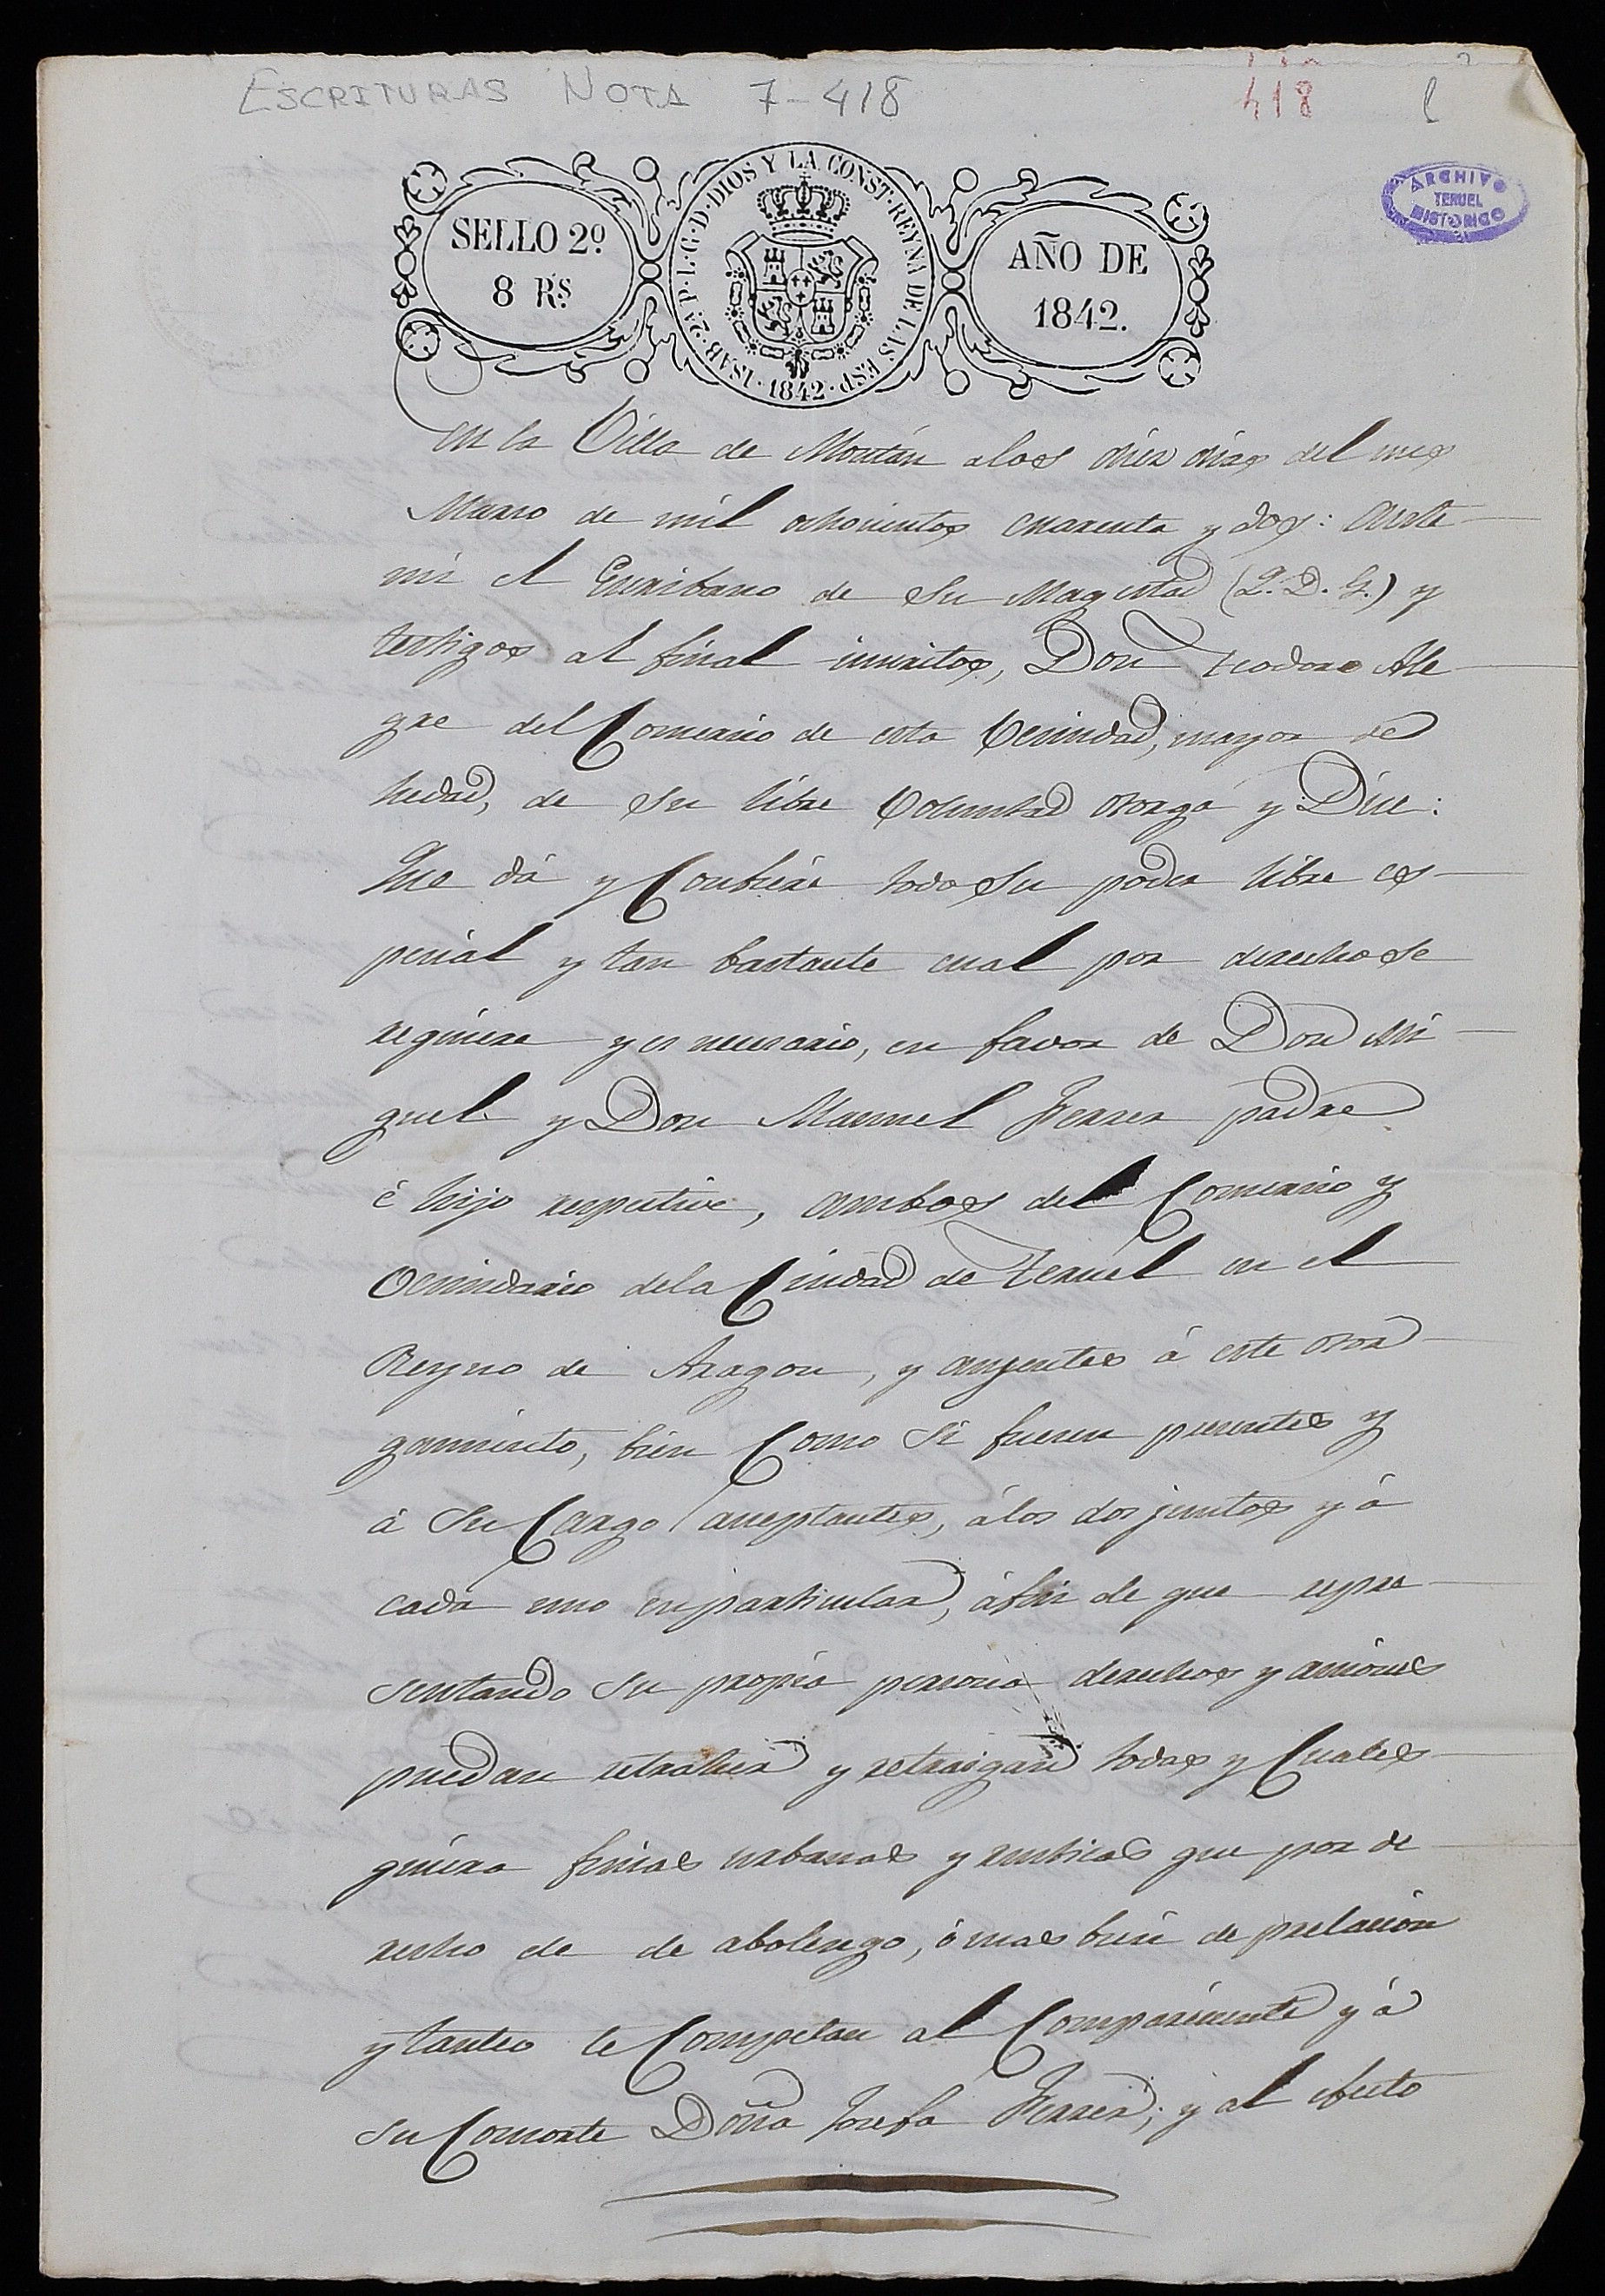 ESCRITURAS NOTA 7-418
418
ARCHIVO
TERUEL
HISTORICO
SELLO 2º.
8 Rs.
ISAB. 2ª. P. L. G. D. DIOS Y LA CONST. REYNA DE LAS ESP. 1842.
AÑO DE
1842.
En la Villa de Montán alos diez dias del mes
Marzo de mil ochocientos cuarenta y dos: Ante
mi el Escribano de Su Magestad (Q. D. G.) y
testigos al final inscritos, Don Teodoro Ale
gre del Comercio de esta Vecindad, mayor de
hedad, de su libre Voluntad otorga y Dice:
Que dá y Confiere todo su poder libre es
pecial y tan bastante cual por derecho se
requiere y es necesario, en favor de Don Mi
guel y Don Manuel Ferrer padre
é hijo respective, ambos del Comercio y
Vecindario dela Ciudad de Teruel en el
Reyno de Aragon, y ausentes á este otor
gamiento, bien Como si fueren presentes y
á su Cargo aceptantes, álos dos juntos y á
cada uno en particular, áfin de que repre
sentando su propia persona derechos y acciones
puedan retraher y retraigan todas y Cuales
quiera fincas urbanas y rusticas que por de
recho de de abolengo, ó mas bien de prelacion
y tanteo le Competan al Compareciente y á
su Consorte Doña Josefa Ferrer; y al efecto